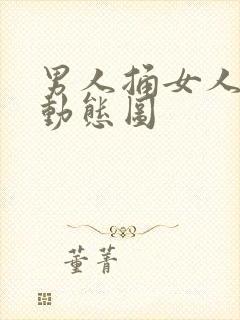 男人捅女人
動態圖
董菁